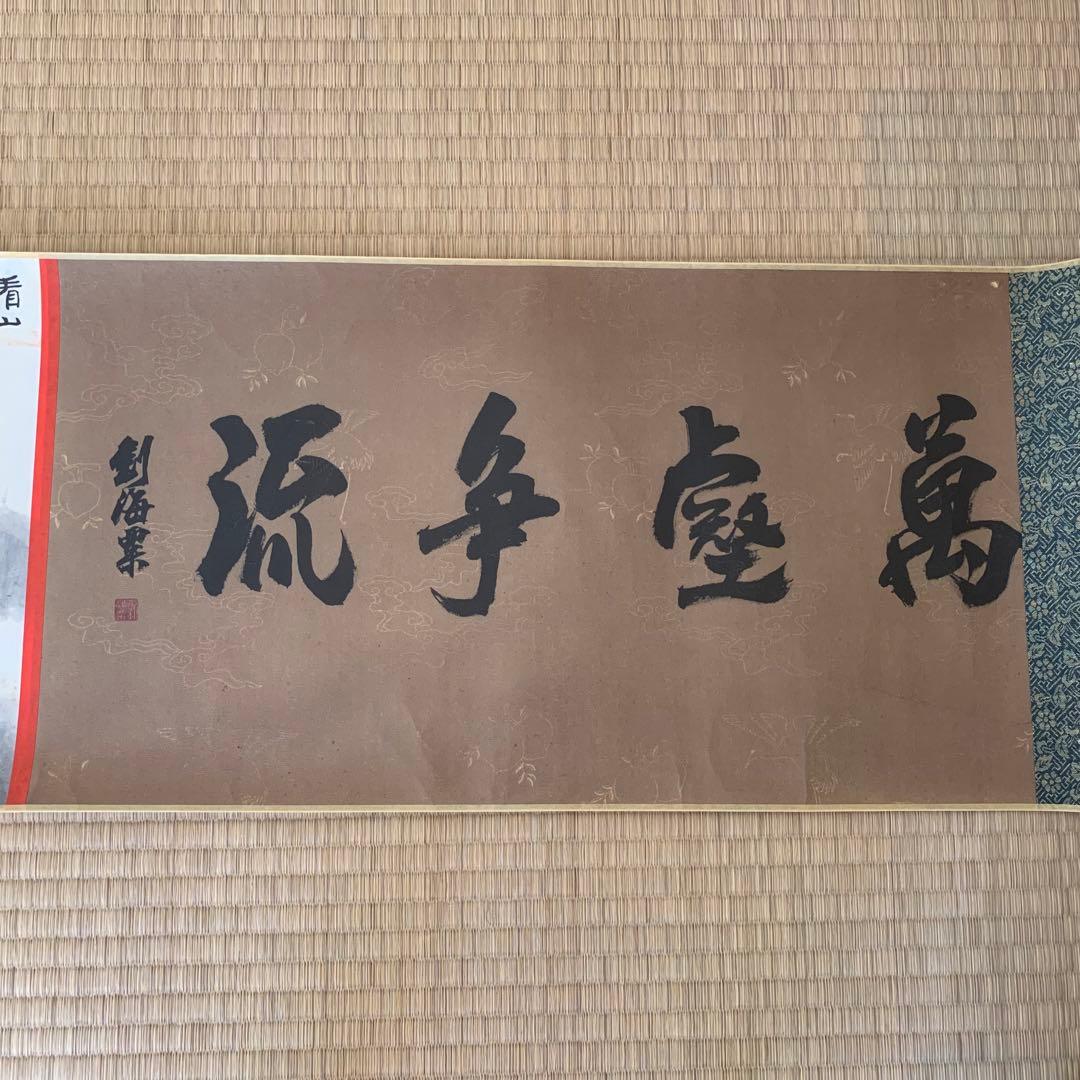 萬壑爭流
劉海粟
看山